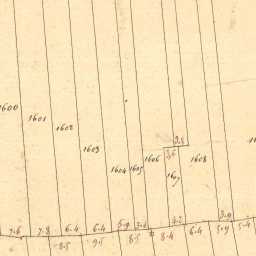 1600
1601
1602
1603
1604
1605
1606
1607
1608
7.6
7.8
6.4
6.4
5.9
3.6
4.2
6.4
3.9
5.9
5.4
8.5
9.5
8.5
8.4